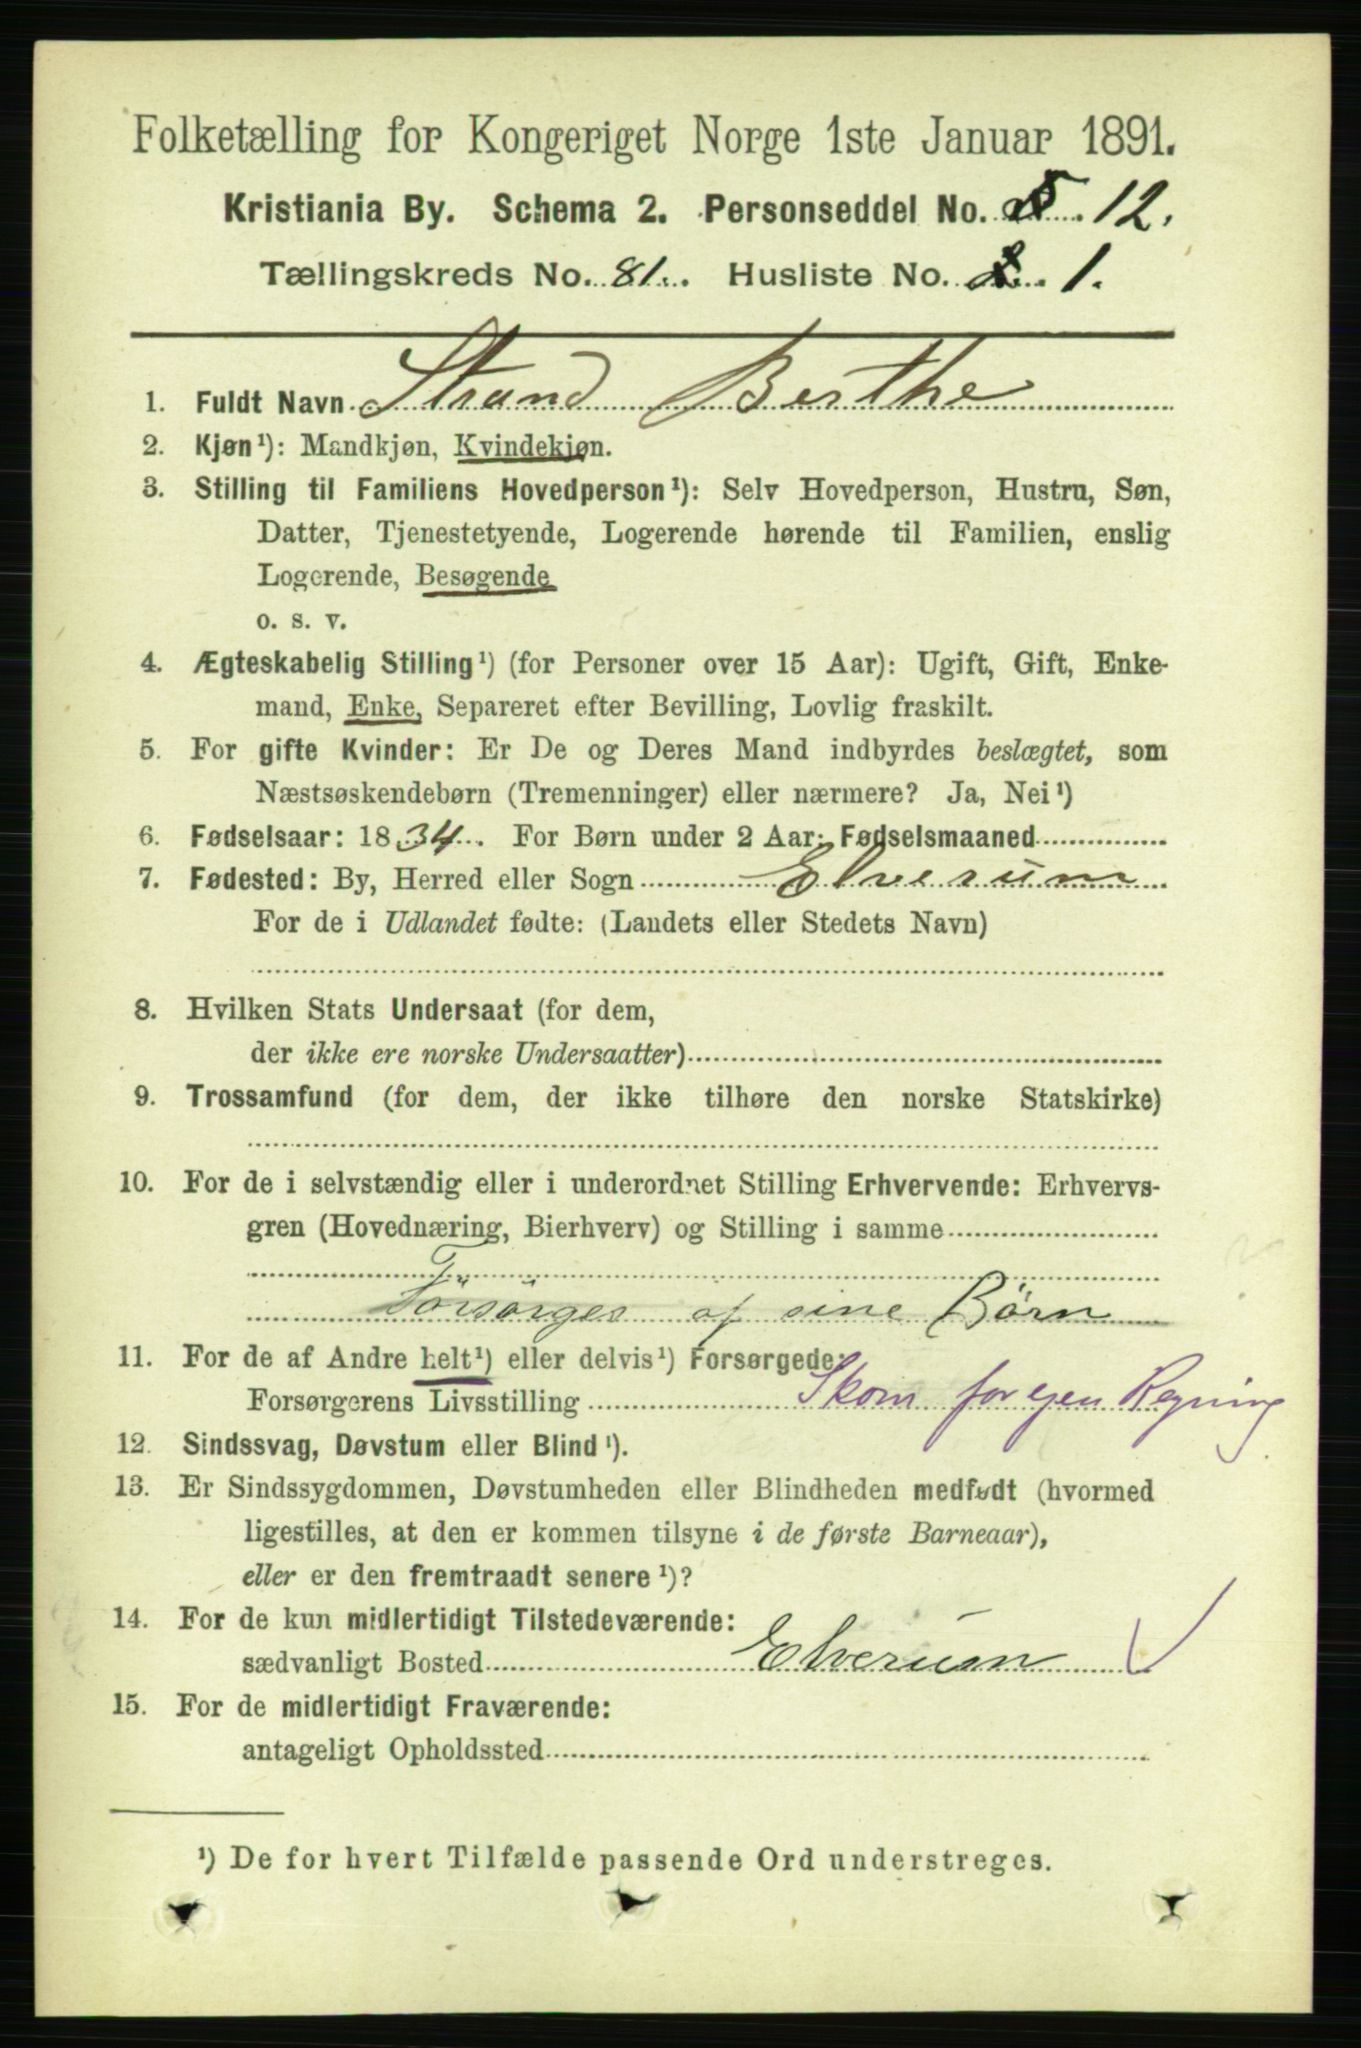 Folketælling for Kongeriget Norge 1ste Januar 1891.
Kristiania By. Schema 2. Personseddel No. 12.
Tællingskreds No. 81. Husliste No. 1.
1. Fuldt Navn Strand Berthe
2. Kjøn¹): Mandkjøn, Kvindekjøn.
3. Stilling til Familiens Hovedperson¹): Selv Hovedperson, Hustru, Søn,
Datter, Tjenestetyende, Logerende hørende til Familien, enslig
Logerende, Besøgende
o. s. v.
4. Ægteskabelig Stilling¹) (for Personer over 15 Aar): Ugift, Gift, Enke-
mand, Enke, Separeret efter Bevilling, Lovlig fraskilt.
5. For gifte Kvinder: Er De og Deres Mand indbyrdes beslægtet, som
Næstsøskendebørn (Tremenninger) eller nærmere? Ja, Nei¹)
6. Fødselsaar: 1834. For Børn under 2 Aar: Fødselsmaaned
7. Fødested: By, Herred eller Sogn Elverum
For de i Udlandet fødte: (Landets eller Stedets Navn)
8. Hvilken Stats Undersaat (for dem,
der ikke ere norske Undersaatter)
9. Trossamfund (for dem, der ikke tilhøre den norske Statskirke)
10. For de i selvstændig eller i underordnet Stilling Erhvervende: Erhvervs-
gren (Hovednæring, Bierhverv) og Stilling i samme
Forsørges af sine Børn
11. For de af Andre helt¹) eller delvis¹) Forsørgede:
Forsørgerens Livsstilling Skom. for egen Regning
12. Sindssvag, Døvstum eller Blind¹).
13. Er Sindssygdommen, Døvstumheden eller Blindheden medfødt (hvormed
ligestilles, at den er kommen tilsyne i de første Barneaar),
eller er den fremtraadt senere¹)?
14. For de kun midlertidigt Tilstedeværende:
sædvanligt Bosted Elverum
15. For de midlertidigt Fraværende:
antageligt Opholdssted
¹) De for hvert Tilfælde passende Ord understreges.